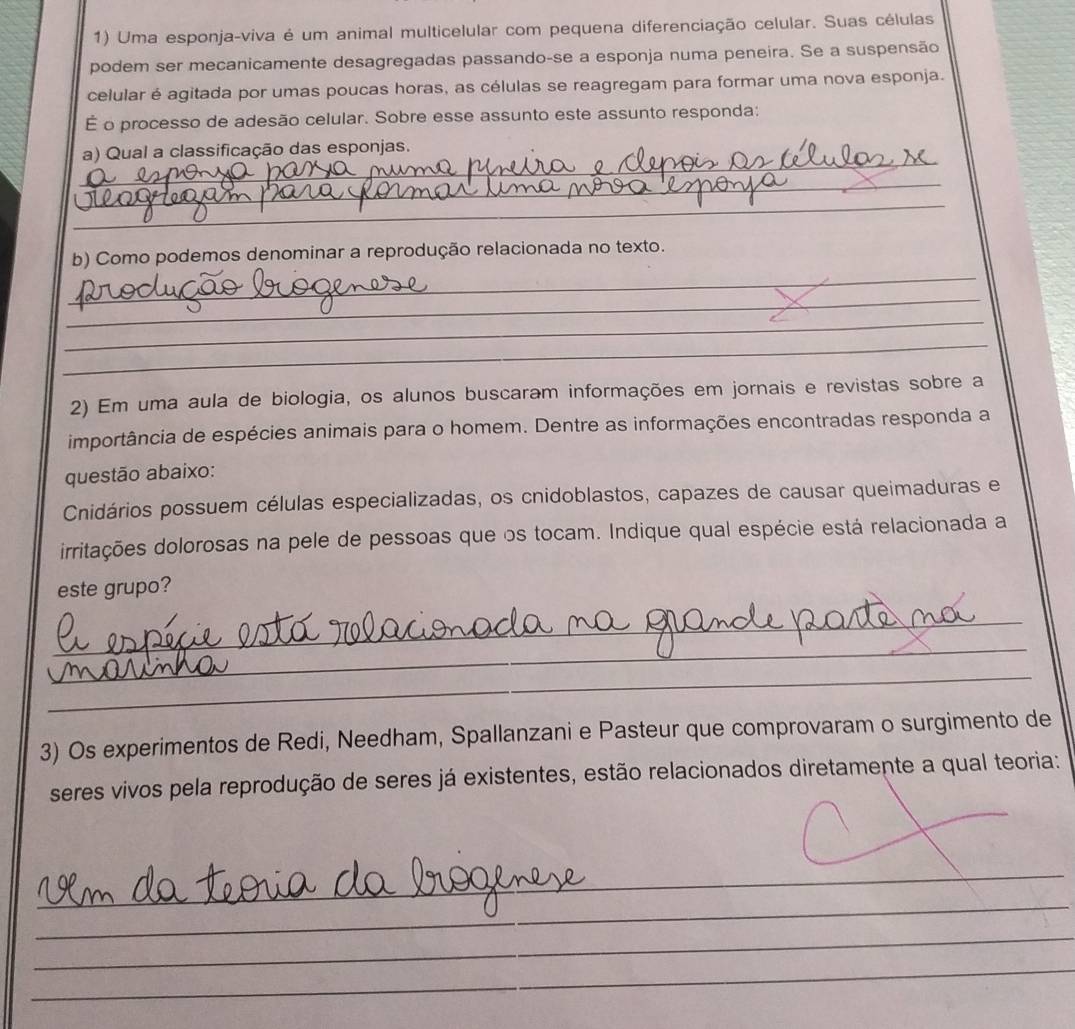 1) Uma esponja-viva é um animal multicelular com pequena diferenciação celular. Suas células
podem ser mecanicamente desagregadas passando-se a esponja numa peneira. Se a suspensão
celular é agitada por umas poucas horas, as células se reagregam para formar uma nova esponja.
É o processo de adesão celular. Sobre esse assunto este assunto responda:
a) Qual a classificação das esponjas.
a esponja passa numa pineira e depois as células se
reagregam para formar uma nova esponja
b) Como podemos denominar a reprodução relacionada no texto.
produção biogenese
2) Em uma aula de biologia, os alunos buscaram informações em jornais e revistas sobre a
importância de espécies animais para o homem. Dentre as informações encontradas responda a
questão abaixo:
Cnidários possuem células especializadas, os cnidoblastos, capazes de causar queimaduras e
irritações dolorosas na pele de pessoas que os tocam. Indique qual espécie está relacionada a
este grupo?
a espécie está relacionada na grande parte na
marinha
3) Os experimentos de Redi, Needham, Spallanzani e Pasteur que comprovaram o surgimento de
seres vivos pela reprodução de seres já existentes, estão relacionados diretamente a qual teoria:
vem da teoria da biogenese